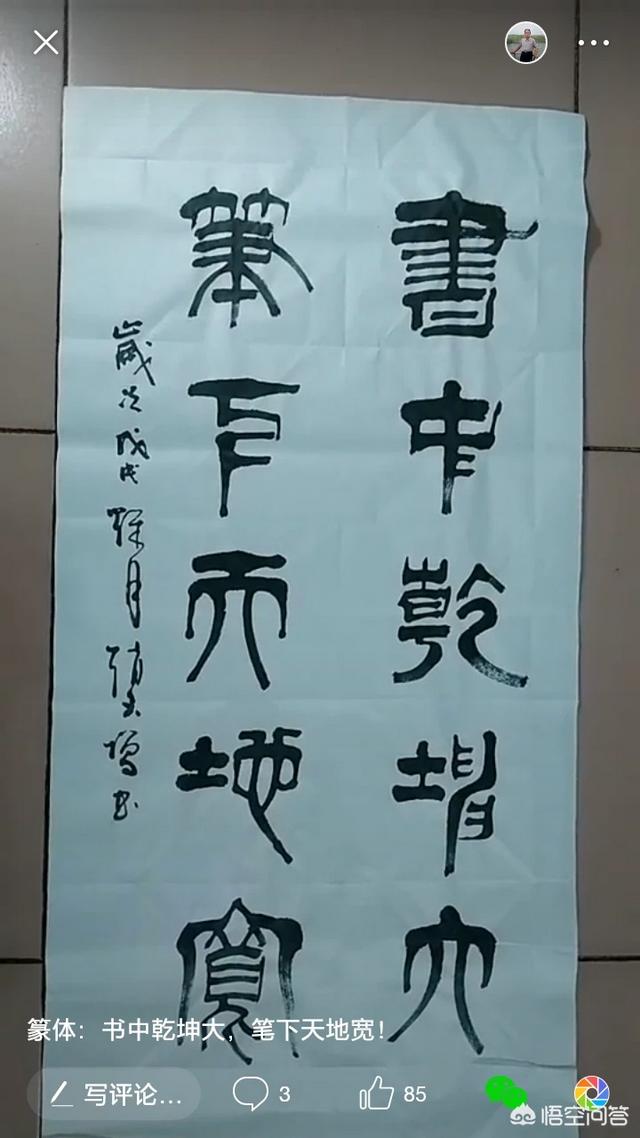 書中乾坤大
筆下天地寬
歲次戊戌 月
篆体：书中乾坤大，笔下天地宽！
写评论...
3
85
悟空问答